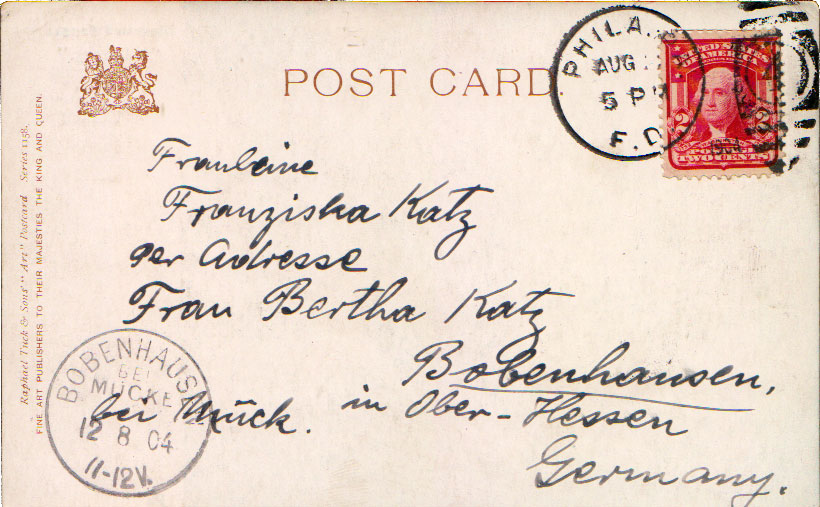 POST CARD.
PHILA.
AUG
5 P
F.D
UNITED STATES
OF AMERICA
2 2
POSTAGE
TWO CENTS
Raphael Tuck & Sons' "Art" Postcard Series 1158.
FINE ART PUBLISHERS TO THEIR MAJESTIES THE KING AND QUEEN.
Frauleine
Franziska Katz
per Adresse
Frau Bertha Katz
Bobenhausen,
bei Mück. in Ober-Hessen
Germany.
BOBENHAUS
BEI
MÜCKE
12 8 04
11-12V.